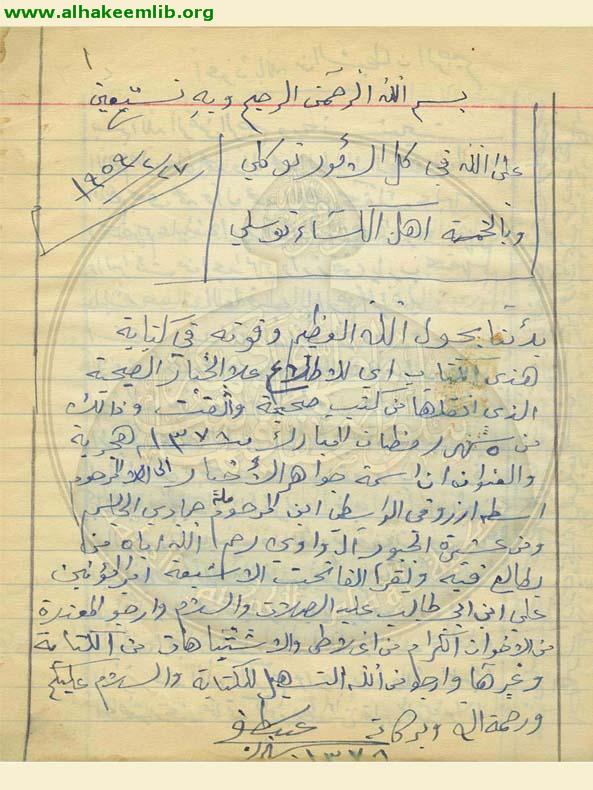 www.alhakeemlib.org
١
بسم الله الرحمن الرحيم وبه نستعين
على الله في كل الأمور توكلي
١٩٥٩/٢/٢٧
وبالخمسة اهل الكساء توسلي
بدئنا بحول الله العظيم وقوته في كتابة
هذى الكتاب اي للاطلاع علا الأخبار الصحيحة
الذي انقلها من كتب صحيحة والثقت وذالك
من ٥ شهر رمظان المبارك ١٣٧٨ هجرية
والعنوان ان اسمة جواهر الأخبار
ابن المرحوم
ومن عشيرة الجبور رحم الله اياه من
يطالع فيه ويقرا الفاتحت امير المؤمنين
علي ابن ابي طالب عليه الصلاة والسلام وارجو المعذرة
من الاخوان الكرام من اي والاشتباهات من الكتابة
وغيرها وارجو من الله التسهيل للكتابة والسلام عليكم
ورحمة الله وبركاته
١٣٧٨